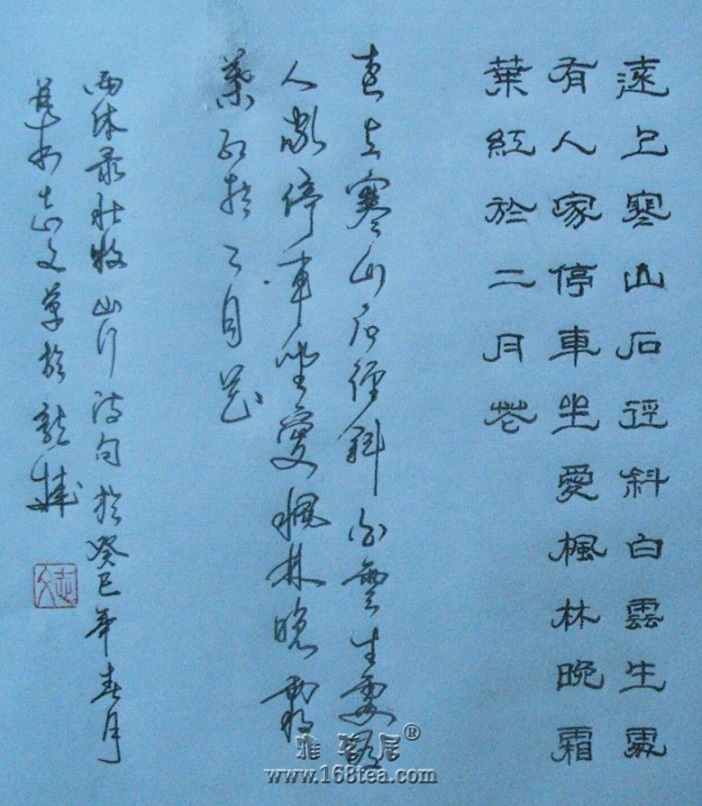 遠上寒山石徑斜白雲生處
有人家停車坐愛楓林晚霜
葉紅於二月花
遠上寒山石徑斜白雲生處有
人家停車坐愛楓林晚霜
葉紅於二月花
兩体录杜牧山行诗句於癸巳年春月
志文草於龍城
志文
雅居®
www.168tea.com